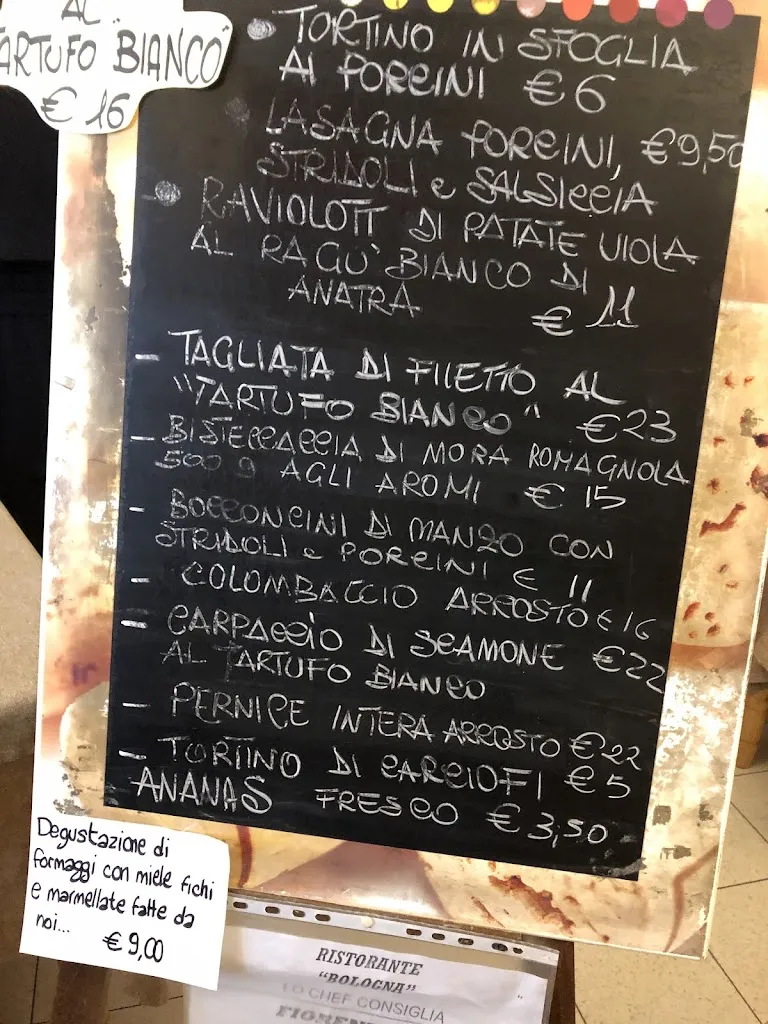 AL
"TARTUFO BIANCO"
€ 16
TORTINO IN SFOGLIA
AI PORCINI € 6
LASAGNA PORCINI, € 9,50
STRIDOLI e SALSICCIA
RAVIOLOTT DI PATATE VIOLA
AL RAGU' BIANCO DI
ANATRA
€ 11
- TAGLIATA DI FILETTO AL
"TARTUFO BIANCO" € 23
- BISTECCACCIA DI MORA ROMAGNOLA
500 g AGLI AROMI € 15
- BOCCONCINI DI MANZO CON
STRIDOLI e PORCINI € 11
- COLOMBACCIO ARROSTO € 16
- CARPACCIO DI SCAMONE € 22
AL TARTUFO BIANCO
- PERNICE INTERA ARROSTO € 22
- TORTINO DI CARCIOFI € 5
ANANAS FRESCO € 3,50
Degustazione di
formaggi con miele fichi
e marmellate fatte da
noi...
€ 9,00
RISTORANTE
"BOLOGNA"
LO CHEF CONSIGLIA